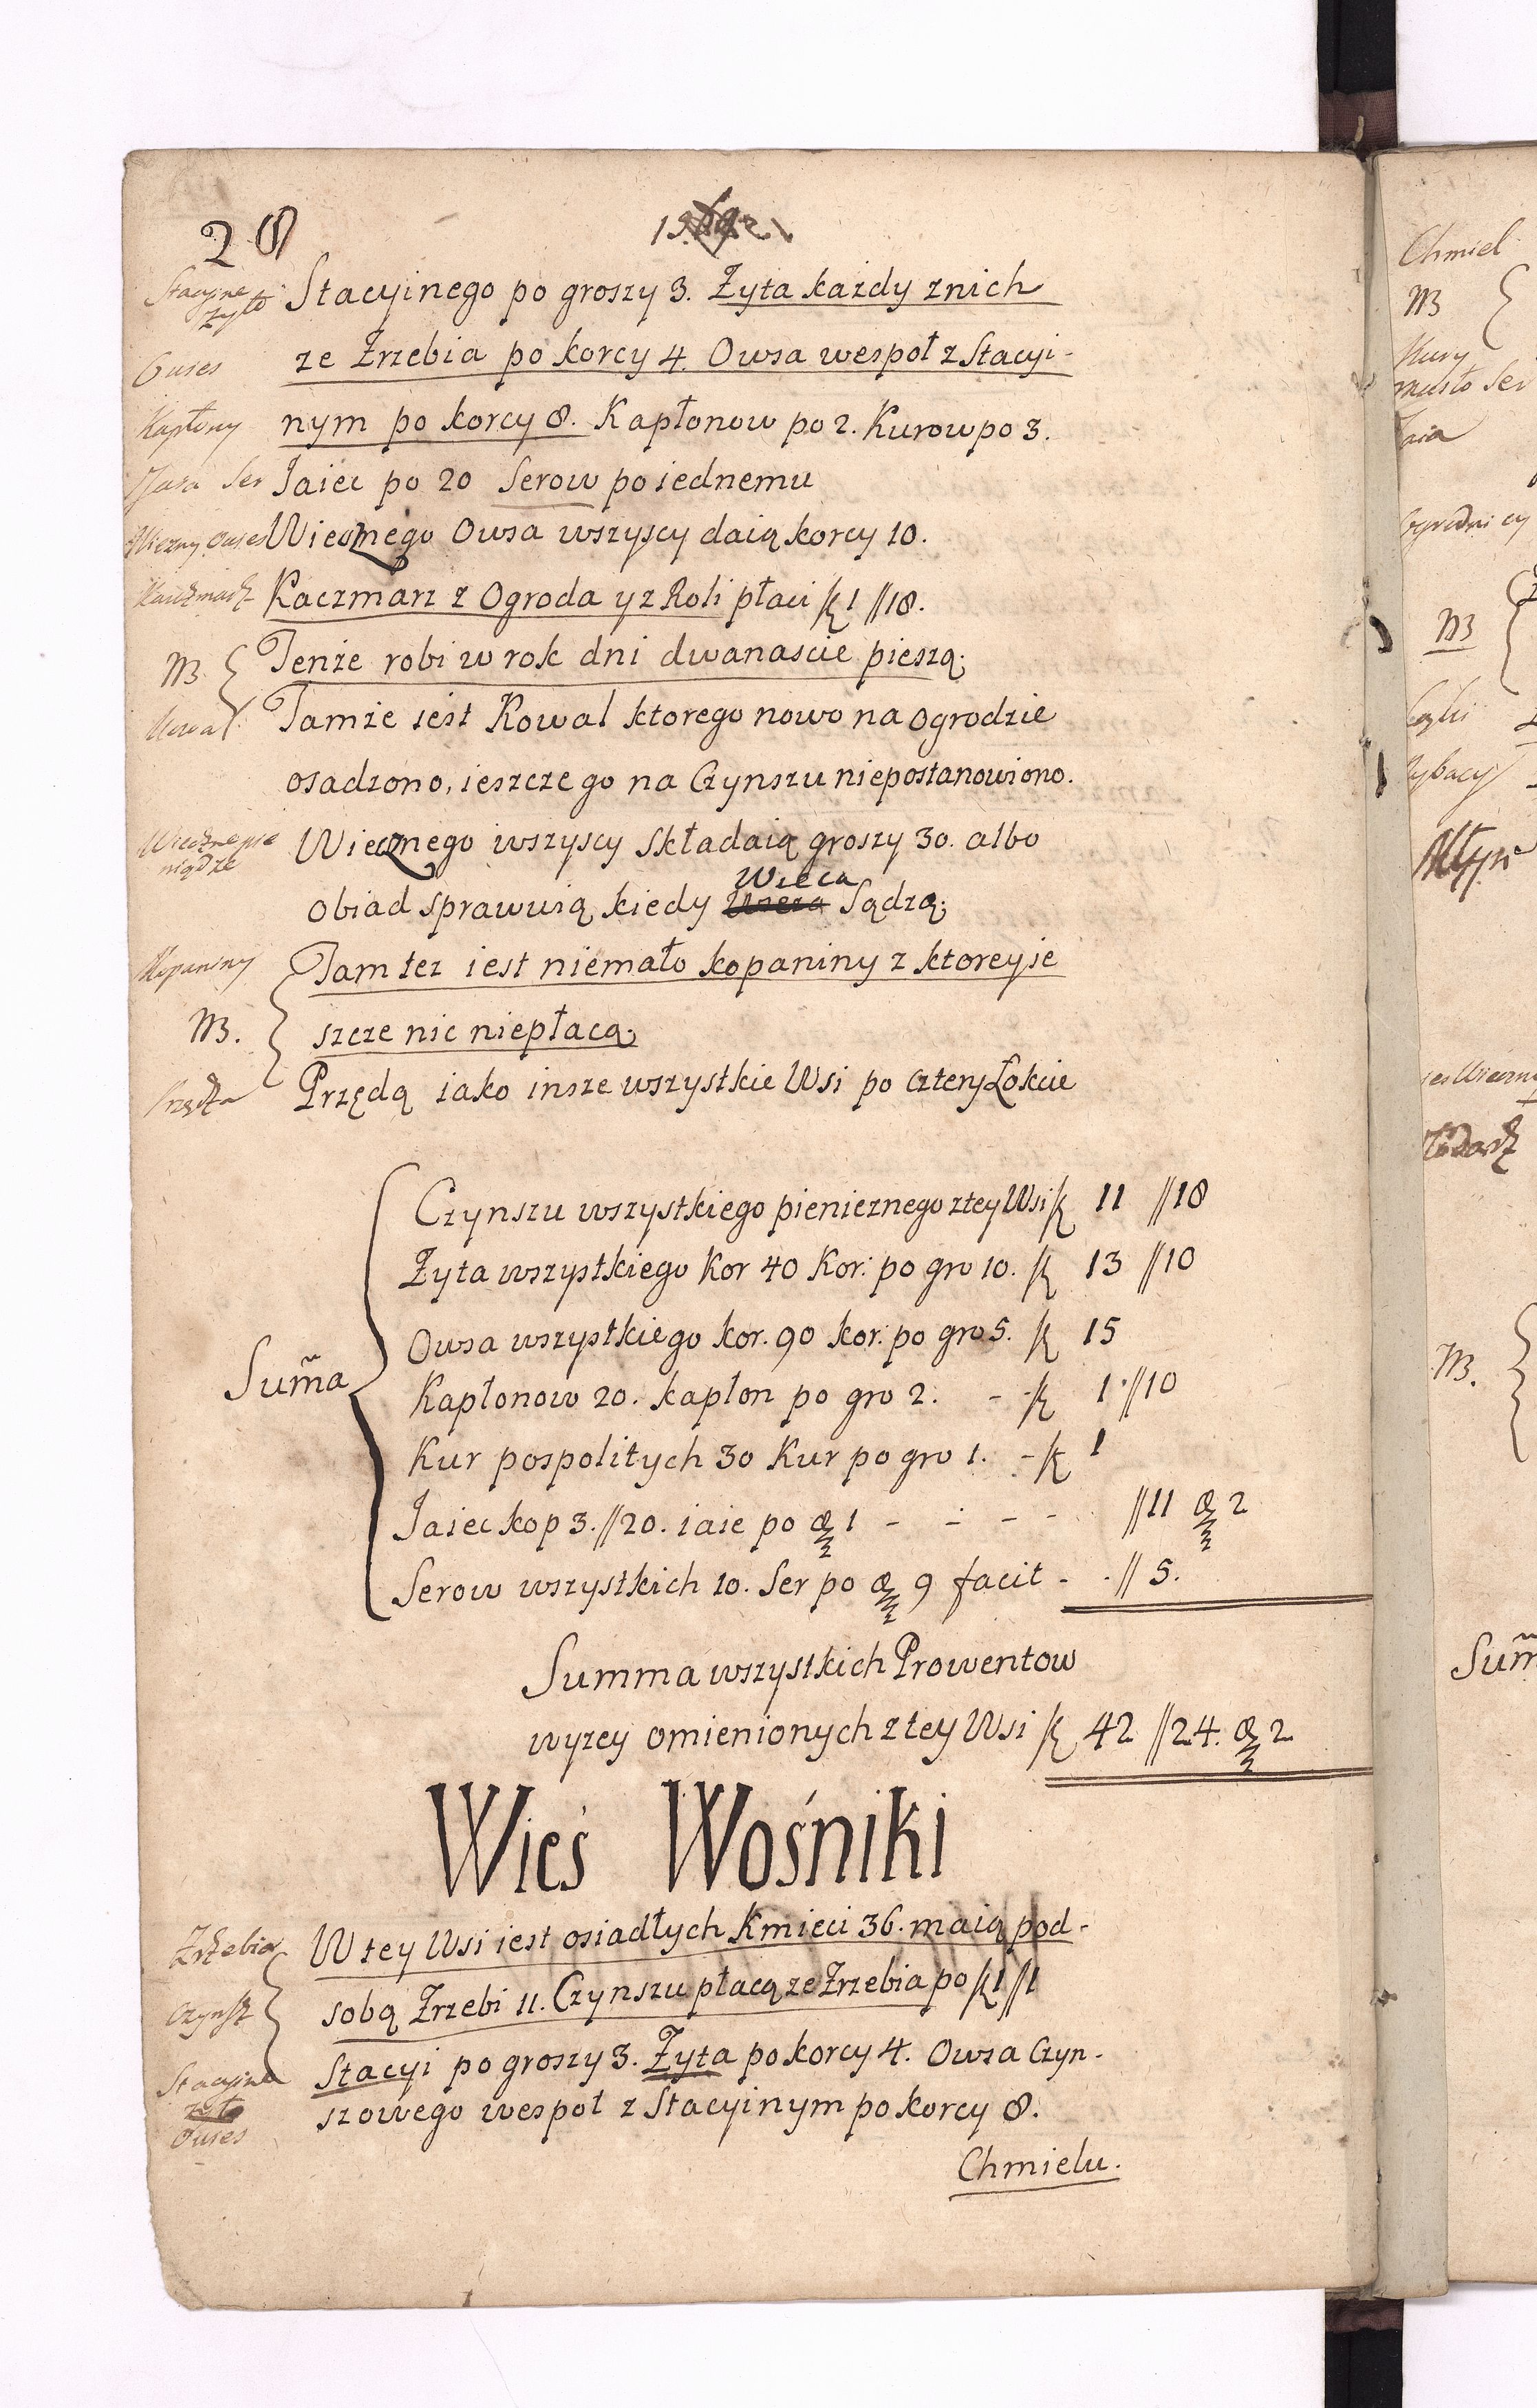 28
Stacyjne żyto Stacyinego po groszy 3. Żyta kazdy znich
Owies ze Źrzebia po korcy 4. Owsa wespoł z Stacyi-
Kapłony nym po korcy 8. Kapłonow po 2. Kurow po 3.
Ser Jaiec po 20 Serow po iednemu
Wieczny Owies Wiecznego Owsa wszyscy daią korcy 10.
Kaczmarz z Ogroda y z Roli płaci 1 //18.
NB. Tenże robi w rok dni dwanascie pieszą.
Kowal Tamże iest Kowal ktorego nowo na ogrodzie
osadzono, ieszcze go na Czynszu niepostanowiono.
Wieczne pieniądze Wiecznego wszyscy składaią groszy 30. albo
obiad sprawuią kiedy Wieca Sądzą.
Kopaniny Tam tez iest niemało kopaniny z ktorey ie
NB. szcze nic niepłacą.
Przędza Przędą iako insze wszystkie Wsi po cztery Łokcie
Czynszu wszystkiego pienieznego z tey Wsi 11 //18
Żyta wszystkiego Kor 40 Kor: po gro 10. 13 //10
Owsa wszystkiego kor. 90 kor: po gro 5. 15
Sum̃a Kapłonow 20. kapłon po gro 2. - - 1 //10
Kur pospolitych 30 Kur po gro 1. - 1
Jaiec kop 3. //20. iaie po 1 - - - - //11 2
Serow wszystkich 10. Ser po 9 facit - - // 5.
Summa wszystkich Prowentow
wyzey omienionych z tey Wsi 42 //24. 2
Wieś Wośniki
Zrzebia W tey Wsi iest osiadłych Kmieci 36. maią pod-
Czynsz sobą Źrzebi 11. Czynszu płacą ze Źrzebia po 1 //1
Stacyjne Stacyi po groszy 3. Żyta po korcy 4. Owsa Czyn-
Owies szowego wespoł z Stacyinym po korcy 8.
Chmielu.
Chmiel
NB
Kury
masło Ser
Jaia
Ogrodnicy
NB
Rybacy
Młyn
NB.
Sum̃